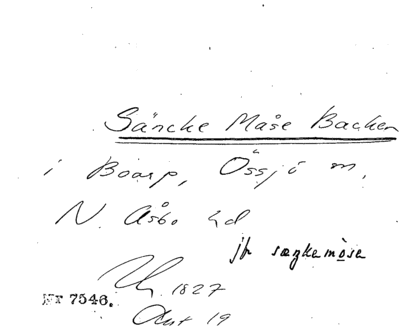 Säncke Måse Backen
i Boarp, Össjö sn,
N. Åsbo hd
jfr sægkemòse
1827
Nr 7546.
Akt 19